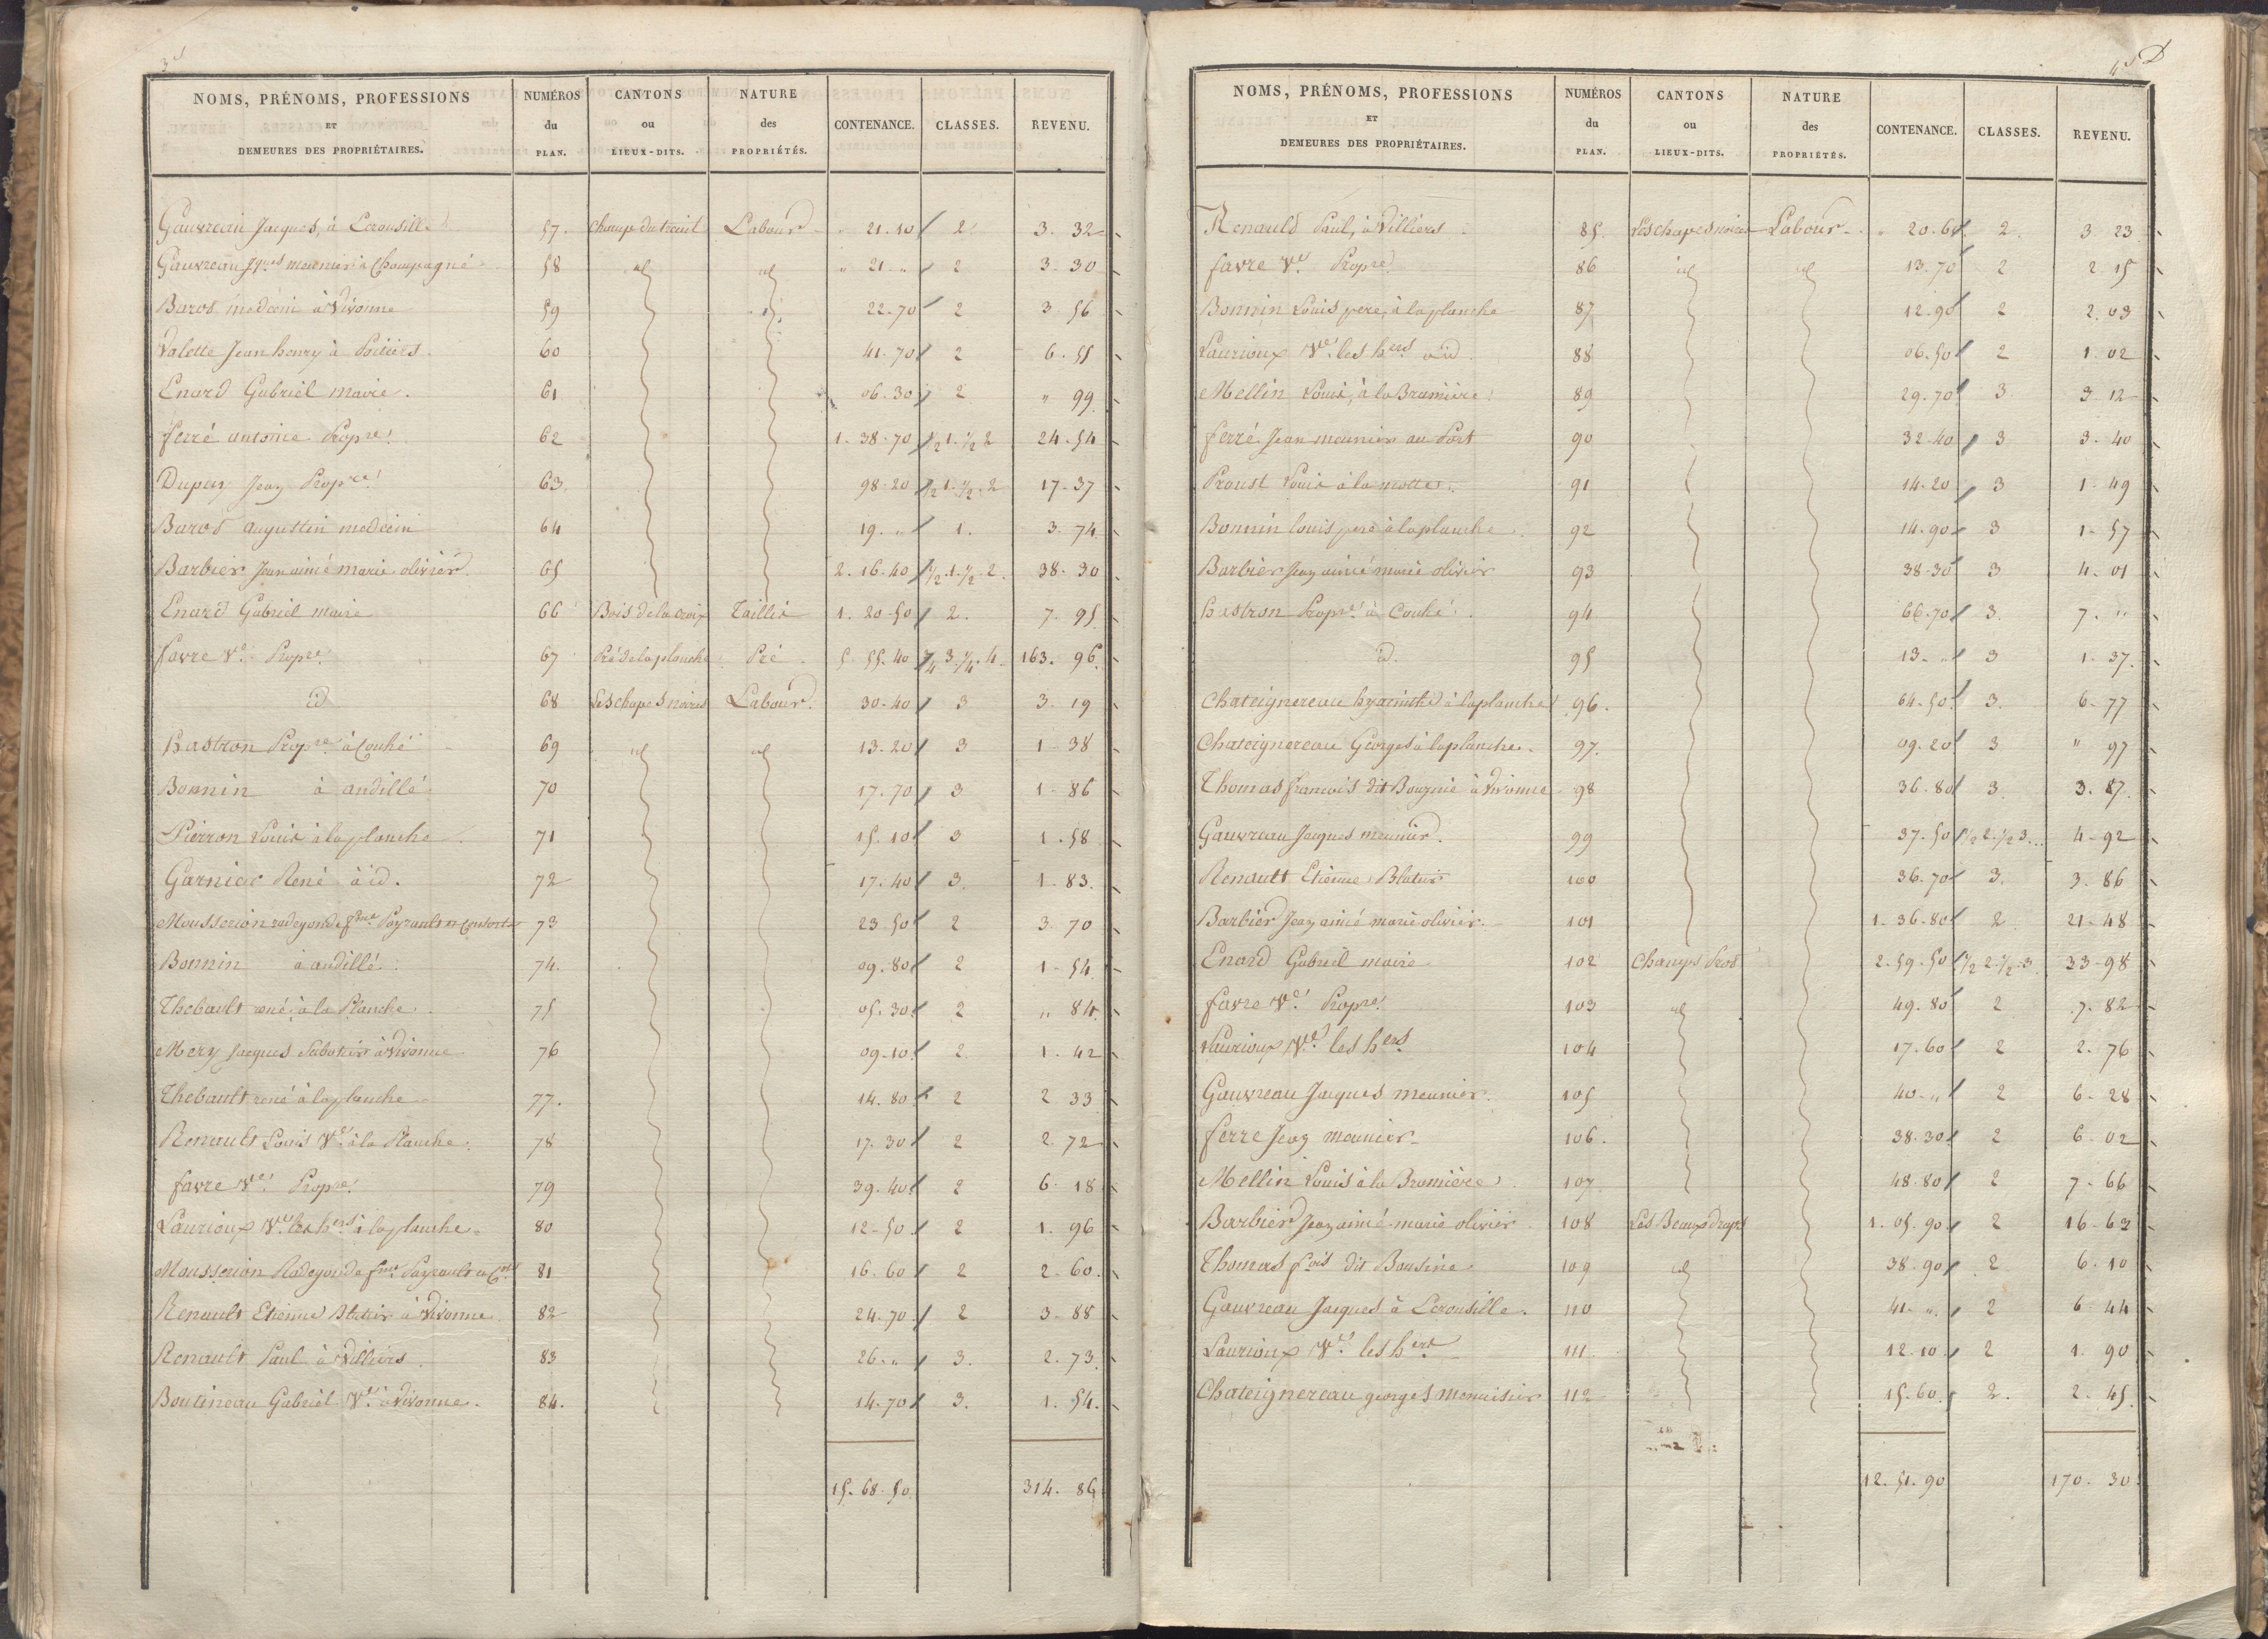 NOMS, PRÉNOMS, PROFESSIONS ET DEMEURES DES PROPRIÉTAIRES. NUMÉROS du PLAN. CANTONS ou LIEUX-DITS. NATURE des PROPRIÉTÉS. CONTENANCE. CLASSES. REVENU.
Gauvreau Jacques, à Lerousille 57. Champ du treuil Labour " 21. 10 2 3. 32
Gauvreau Jques meunier à Champagné 58 id id " 21 " 2 3. 30
Barot medecin à Vivonne 59 22. 70 2 3. 56
Valette Jean henry à Poitiers. 60 41. 70 2 6. 55
Enard Gabriel maire. 61 06. 30 2 " 99
ferré antoine Propre. 62 1. 38. 70 ½ 1. ½ 2 24. 54
Dupuy Jean Propre 63. 98. 20 ½ 1. ½. 2 17. 37
Barot augustin medecin 64 19. " 1. 3. 74
Barbier Jean aimé marie olivier. 65 2. 16. 40 ½. 1. ½. 2. 38. 30
Enard Gabriel maire 66 Bois de la croix Taillis 1. 20. 50 2. 7. 95
favre Ve. Propre. 67 Pré de la planche Pré 5. 55. 40 ¾ 3. ¼. 4. 163. 96.
id 68 Les chapes noires Labour. 30. 40 3 3. 19
hastron Propre à Couhé 69 id id 13. 20 3 1. 38
Bonnin à andillé 70 17. 70 3 1. 86
Pierron Louis à la planche 71 15. 10 3 1. 58
Garnier René à id. 72 17. 40 3. 1. 83.
Mousserion radegonde fme Payrault et Consorts 73 23 50 2 3. 70
Bonnin à andillé. 74. 09. 80 2 1. 54
Thebault rené à la Planche. 75 05. 30. 2 " 84
Mery Jacques Sabotier à Vivonne 76 09. 10. 2. 1. 42
Thebault rené à la planche 77. 14. 80 2 2 33
Renault Louis Ve. à la Planche. 78 17. 30 2 2. 72
favre Ve. Propre. 79 39. 40. 2 6. 18
Laurioux Ve les hers à la planche. 80 12. 50 2 1. 96
Mousserion Radegonde fme Payrault et Cts 81 16. 60 2 2. 60.
Renault Etienne Blatier à Vivonne 82 24. 70. 2 3. 88
Renault Paul à Villiers. 83 26. " 3. 2. 73
Boutineau Gabriel Ve à Vivonne. 84. 14. 70 3. 1. 54.
15. 68. 50. 314. 86
NOMS, PRÉNOMS, PROFESSIONS ET DEMEURES DES PROPRIÉTAIRES. NUMÉROS du PLAN. CANTONS ou LIEUX-DITS. NATURE des PROPRIÉTÉS. CONTENANCE. CLASSES. REVENU.
Renauld Paul, à Villiers 85 Les chapes noires Labour " 20. 60 2. 3 23
favre Ve. Propre. 86 id id 13. 70 2 2 15
Bonnin Louis pere, à la planche 87 12. 90 2 2. 03
Laurioux Ve les hers à id. 88 06. 50 2 1. 02
Mellin Louis, à la Brumière. 89 29. 70 3 3. 12
ferré Jean meunier au Port 90 32. 40 3 3. 40
Proust Louis à la motte. 91 14. 20 3 1. 49
Bonnin louis pere à la planche. 92 14. 90 3 1. 57
Barbier Jean aimé marie olivier 93 38. 30 3 4. 01
hastron Propre à Couhé. 94 66. 70 3. 7. "
id. 95 13. " 3 1. 37.
Chateignereau hyacinthe à la planche 96. 64. 50. 3. 6. 77
Chateignereau Georges à la planche. 97. 09. 20 3 " 97
Thomas francois dit Bouzine à Vivonne 98 36. 80 3. 3. 87.
Gauvreau Jacques meunier. 99 37. 50 ½ 2. ½ 3. 4. 92
Renault Etienne Blatier 100 36. 70 3. 3. 86
Barbier Jean aimé marie olivier. 101 1. 36. 80 2 21. 48
Enard Gabriel maire 102 Champs Gros 2. 59. 50 ½ 2. ½. 3 33. 98
favre Ve. Propre. 103 id 49. 80 2 7. 82
Laurioux Ve. les hers 104 17. 60 2 2. 76
Gauvreau Jacques meunier. 105 40. " 2 6. 28
ferre Jean meunier 106. 38. 30. 2 6. 02
Mellin Louis à la Brumière 107 48. 80 2 7. 66
Barbier Jean aimé marie olivier 108 Les Beaux draps 1. 05. 90 2 16. 63
Thomas fcois dit Bousine 109 id 38. 90 2 6. 10
Gauvreau Jacques à Lerousille. 110 41. " 2 6. 44
Laurioux Ve. les hers 111. 12. 10 2 1. 90
Chateignereau georges menuisier 112 15. 60. 2. 2. 45
12. 51. 90 170. 30